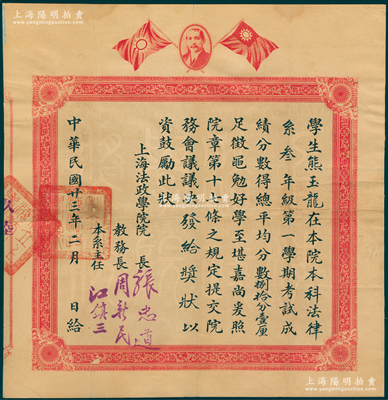 上海陽明拍賣
www.yangmingauction.com
學生熊玉龍在本院本科法律
系叁年級第一學期考試成
績分數得總平均分數捌拾分壹厘
足徵黽勉好學至堪嘉尚爰照
院章第十七條之規定提交院
務會議議決發給奬狀以
資鼓勵此狀
上海法政學院院長張忠道
教務長周新民
本系主任江鎮三
中華民國廿三年二月 日給
上海陽明拍賣
www.yangmingauction.com